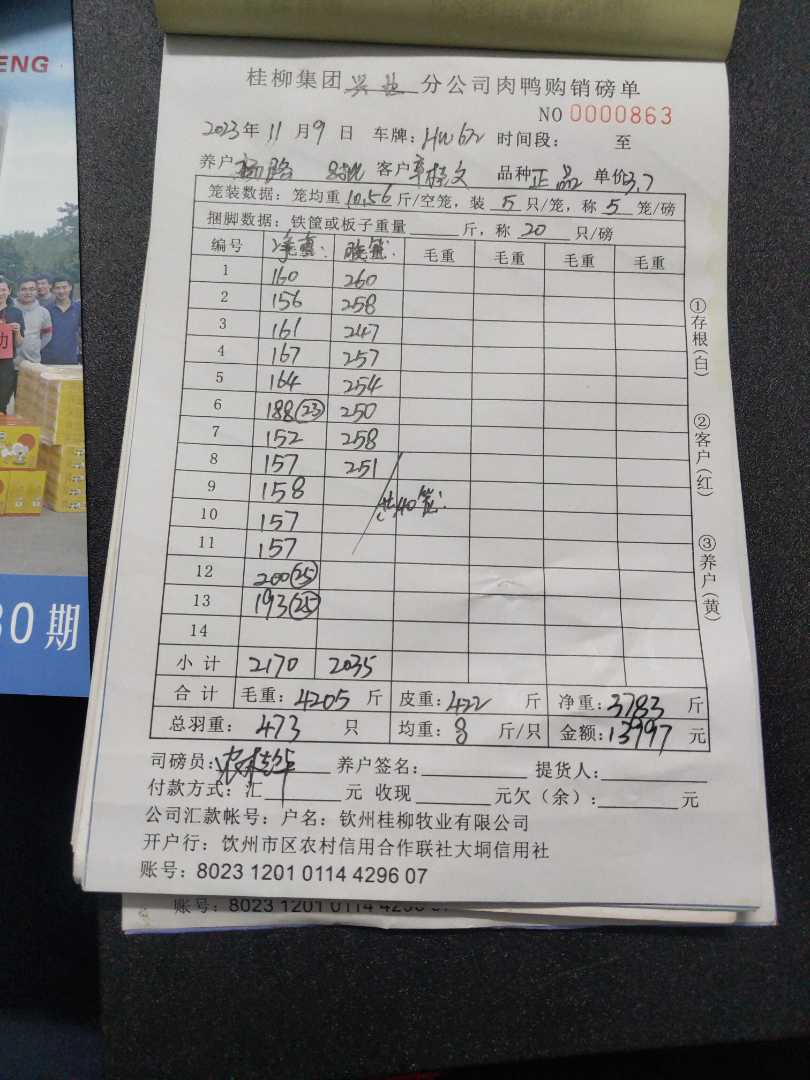 ENG
桂柳集团兴业分公司肉鸭购销磅单
NO 0000863
2023年11月9日 车牌: HW672 时间段: 至
养户 杨路 8批 客户 品种 正品 单价3.7
笼装数据: 笼均重 10.56 斤/空笼, 装 5 只/笼, 称 5 笼/磅
捆脚数据: 铁筐或板子重量 斤, 称 20 只/磅
编号 净重: 毛重 毛重 毛重 毛重
1 160 260
2 156 258
3 161 247
4 167 257
5 164 254
6 188(23) 250
7 152 258
8 157 251
9 158 共40笼
10 157
11 157
12 200(25)
13 193(25)
14
小计 2170 2035
合计 毛重: 4205 斤 皮重: 422 斤 净重: 3783 斤
总羽重: 473 只 均重: 8 斤/只 金额: 13997 元
①存根(白)
②客户(红)
③养户(黄)
司磅员: 养户签名: 提货人:
付款方式: 汇 元 收现 元欠(余): 元
公司汇款帐号: 户名: 钦州桂柳牧业有限公司
开户行: 钦州市区农村信用合作联社大垌信用社
账号: 8023 1201 0114 4296 07
账号: 8023 1201 0114 4296 07
30期